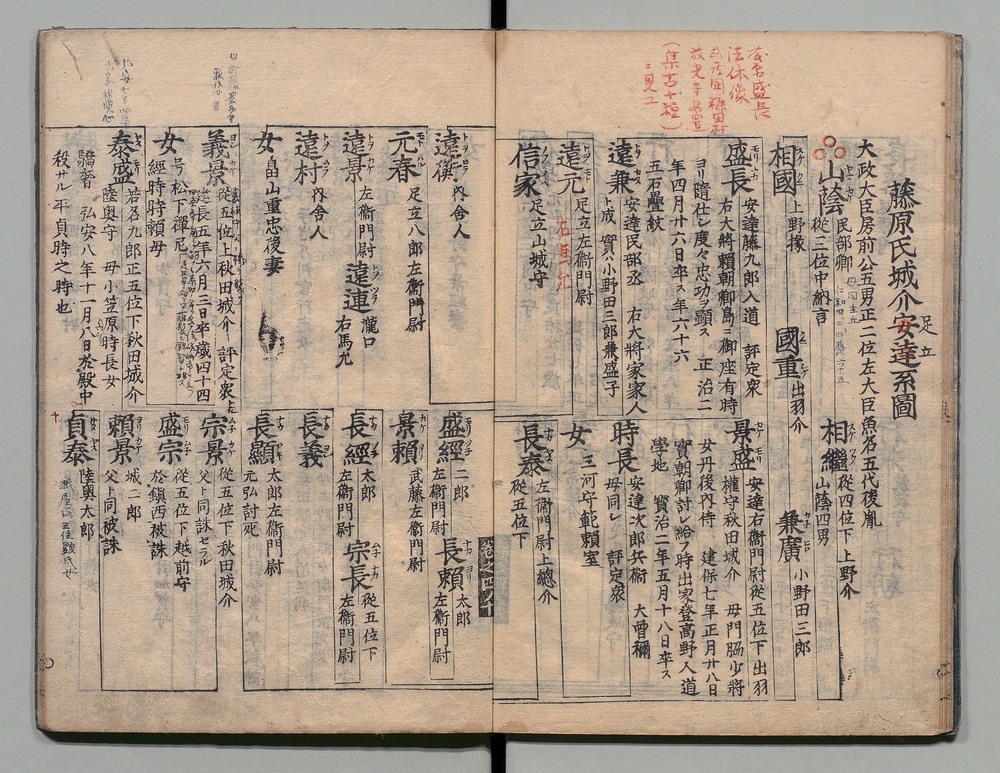 藤原氏城介安達系圖
足立
大政大臣房前公五男正二位左大臣魚名五代後胤
山蔭 民部卿
從三位中納言
相繼 從四位下上野介
山蔭四男
相國 上野掾
國重 出羽介
兼廣 小野田三郎
盛長 安達藤九郎入道 評定衆
右大將賴朝卿島ニ御座有時
ヨリ隨仕シ度々忠功ヲ顯ス 正治二
年四月廿六日卒ス年六十六
五石疊紋
景盛 安達右衛門尉從五位下出羽
權守秋田城介 母門脇少將
女丹後內侍 建保七年正月廿八日
實朝卿討レ給フ時出家登高野入道
學地 寶治二年五月十八日卒ス
遠兼 安達民部丞 右大將家家人
ト成 實小野田三郎兼盛子
時長 安達次郎兵衛 大曾禰
母同レ 評定衆
遠元 足立左衛門尉
右馬允
女 三河守範賴室
信家 足立山城守
長泰 左衛門尉上總介
從五位下
茂京盛長
法体像
放光寺安置
(集古十種)
ニ見エ
遠衡 內舍人
元春 足立八郎左衛門尉
遠景 左衛門尉
遠連 瀧口
右馬允
遠村 內舍人
女 畠山重忠後妻
盛經 二郎
左衛門尉
長賴 太郎
左衛門尉
景賴 武藤左衛門尉
長經 太郎
左衛門尉
宗長 從五位下
左衛門尉
長義
長顯 太郎左衛門尉
元弘討死
義景 從五位上秋田城介 評定衆
建長五年六月三日卒歲四十四
女 号松下禪尼
經時時賴母
泰盛 若名九郎正五位下秋田城介
陸奧守 母小笠原時長女
驕奢 弘安八年十一月八日於殿中
殺サル平貞時之時也
宗景 從五位下秋田城介
父ト同誅セラル
盛宗 從五位下越前守
於鎮西被誅
賴景 城二郎
父ト同被誅
貞泰 陸奧太郎